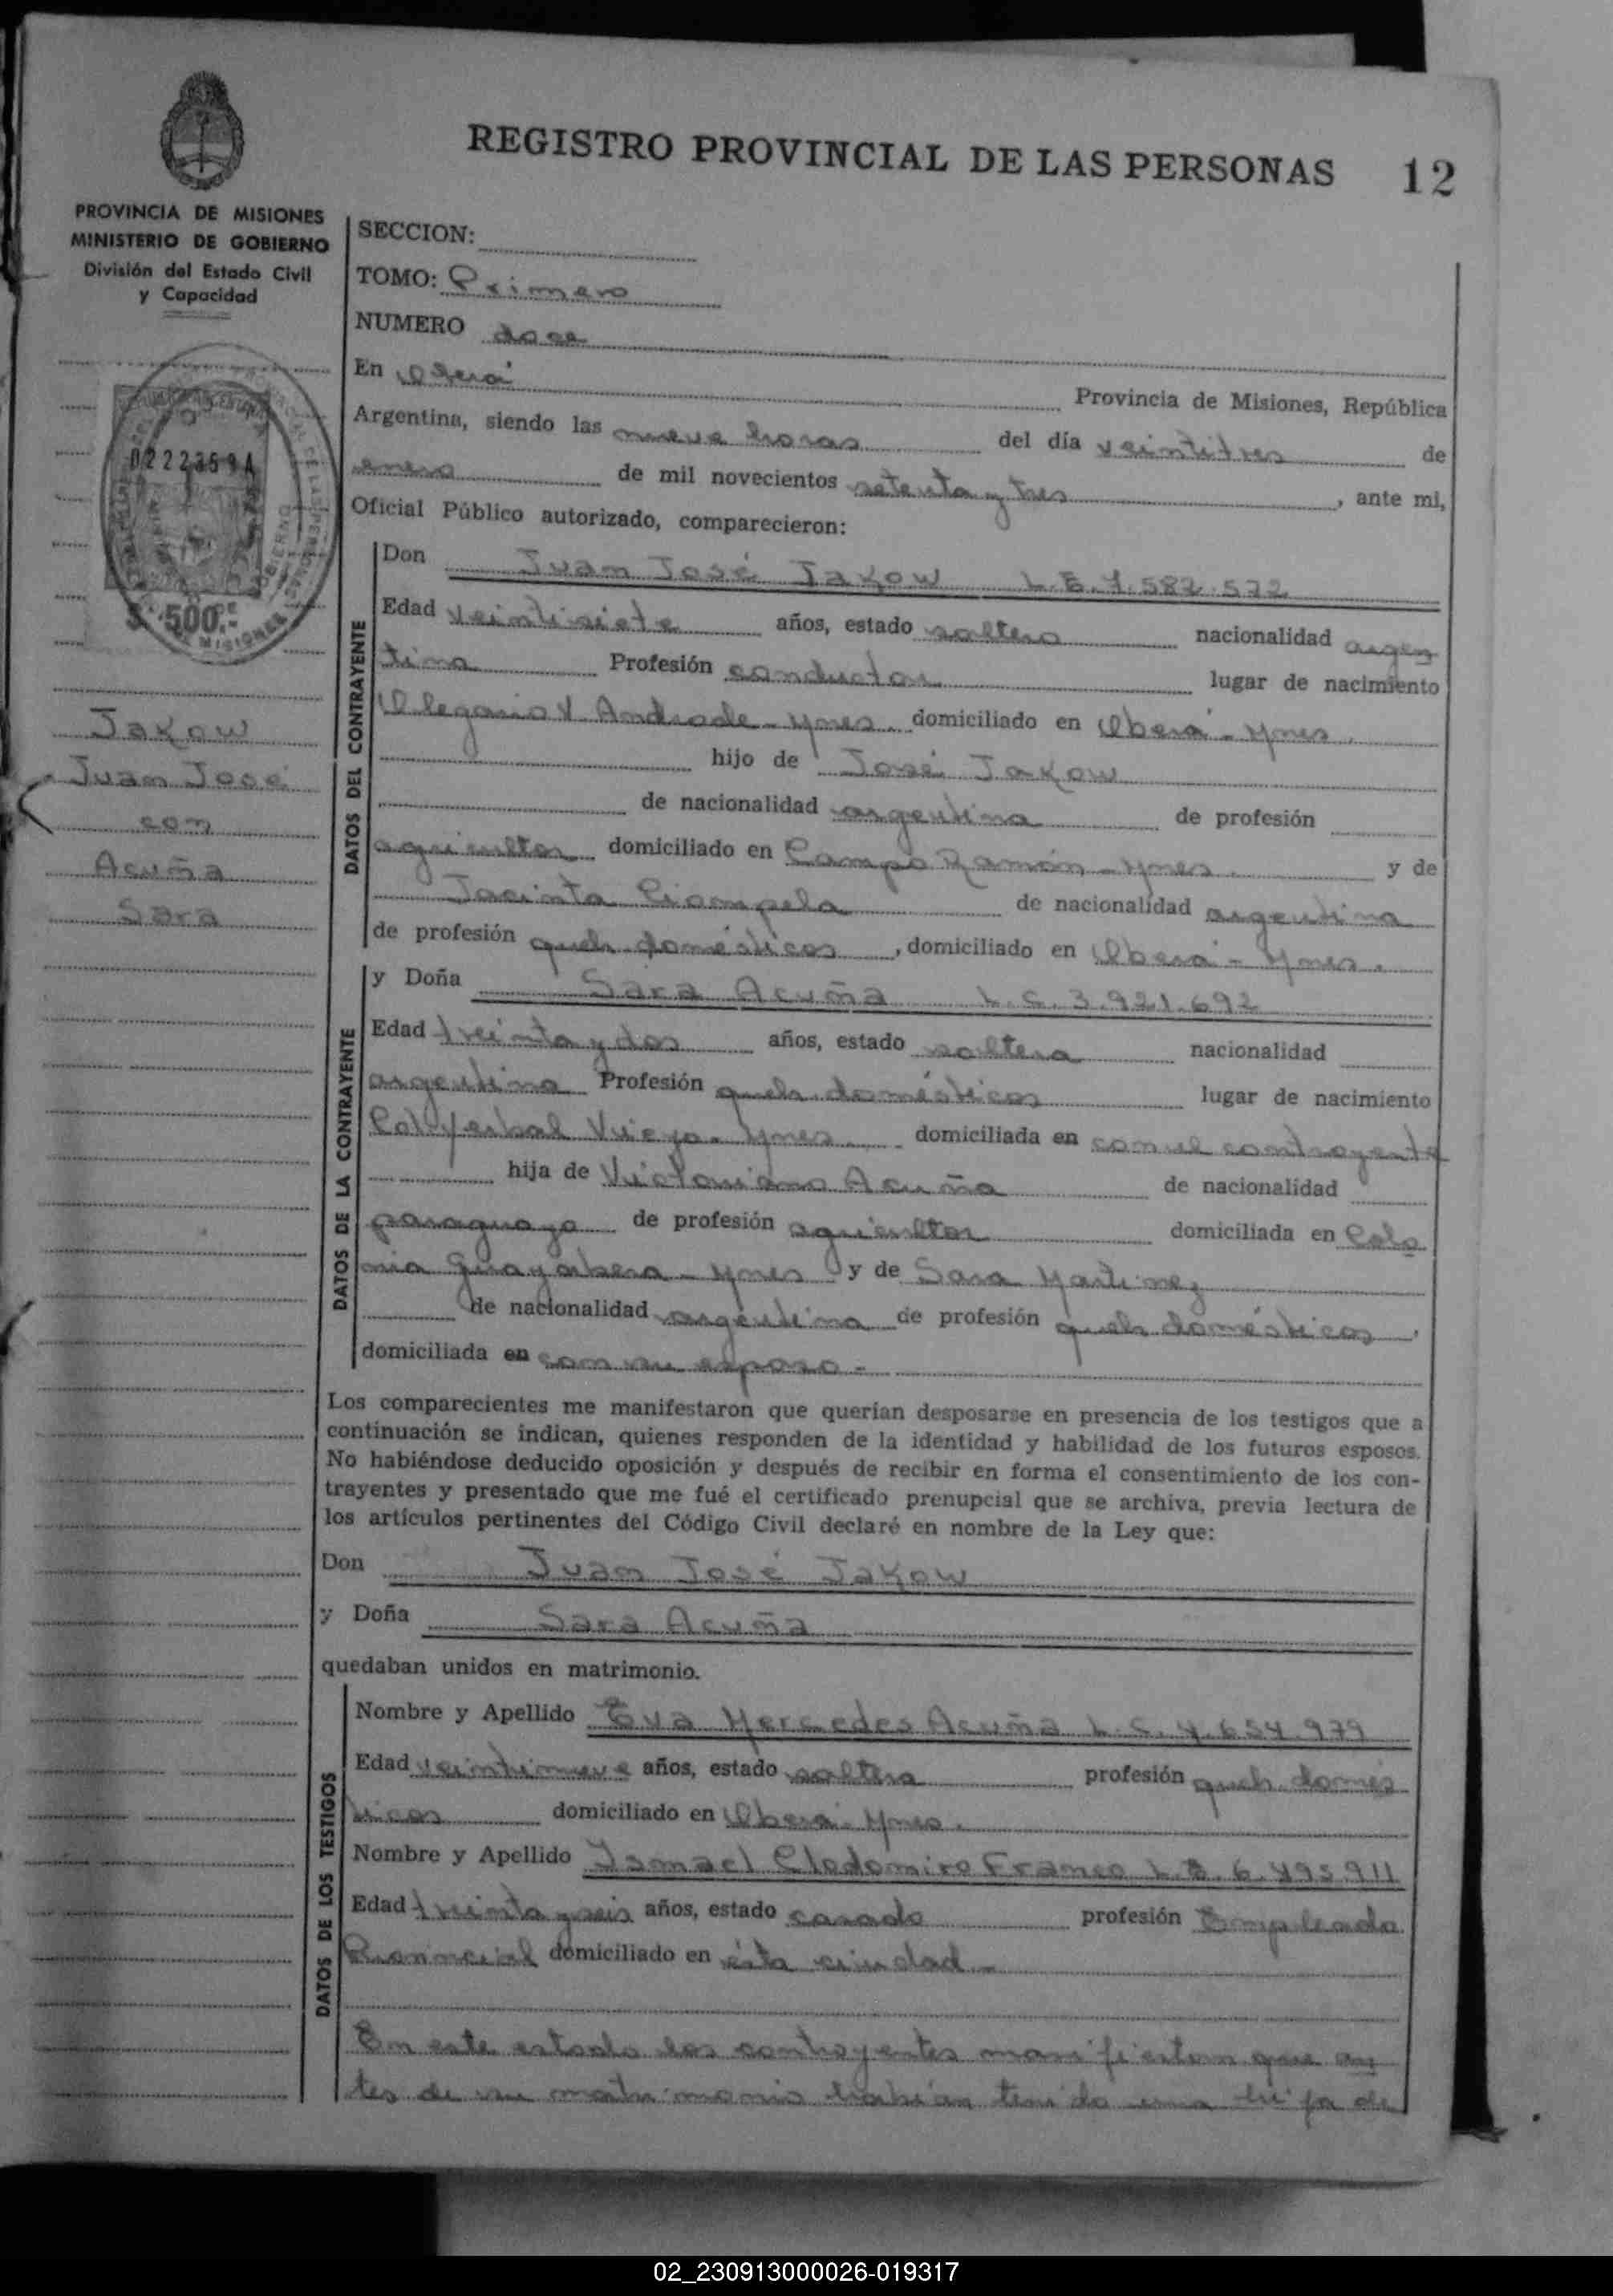 REGISTRO PROVINCIAL DE LAS PERSONAS 12
PROVINCIA DE MISIONES
MINISTERIO DE GOBIERNO
División del Estado Civil
y Capacidad
SECCION:
TOMO: Primero
NUMERO doce
En Oberá Provincia de Misiones, República
Argentina, siendo las nueve horas del día veintitres de
enero de mil novecientos setenta y tres, ante mi,
Oficial Público autorizado, comparecieron:
02223594
$ 500.-
MISIONES
Jakow
Juan José
con
Acuña
Sara
DATOS DEL CONTRAYENTE
Don Juan José Jakow L.E. 7.582.572
Edad veintisiete años, estado soltero nacionalidad argen
tina Profesión conductor lugar de nacimiento
Olegario V. Andrade - Mnes. domiciliado en Oberá - Mnes.
hijo de José Jakow
de nacionalidad argentina de profesión
agricultor domiciliado en Campo Ramón - Mnes. y de
Jacinta de nacionalidad argentina
de profesión queh. domésticos, domiciliado en Oberá - Mnes.
DATOS DE LA CONTRAYENTE
y Doña Sara Acuña L.C. 3.921.692
Edad treinta y dos años, estado soltera nacionalidad
argentina Profesión queh. domésticos lugar de nacimiento
Col. Yerbal Viejo - Mnes. domiciliada en con el contrayente
hija de Victoriano Acuña de nacionalidad
paraguaya de profesión agricultor domiciliada en Colo
nia Guayabera - Mnes y de Sara Martinez
de nacionalidad argentina de profesión queh. domésticos,
domiciliada en con su esposo -
Los comparecientes me manifestaron que querían desposarse en presencia de los testigos que a
continuación se indican, quienes responden de la identidad y habilidad de los futuros esposos.
No habiéndose deducido oposición y después de recibir en forma el consentimiento de los con-
trayentes y presentado que me fué el certificado prenupcial que se archiva, previa lectura de
los artículos pertinentes del Código Civil declaré en nombre de la Ley que:
Don Juan José Jakow
y Doña Sara Acuña
quedaban unidos en matrimonio.
DATOS DE LOS TESTIGOS
Nombre y Apellido Eva Mercedes Acuña L.C. 4.654.979
Edad veintinueve años, estado soltera profesión queh. domés
ticos domiciliado en Oberá - Mnes.
Nombre y Apellido Ismael Clodomiro Franco L.E. 6.495.911
Edad treinta y seis años, estado casado profesión Empleado
Provincial domiciliado en ésta ciudad -
En este estado los contrayentes manifiestan que an
tes de su matrimonio habían tenido una hija de
02_230913000026-019317